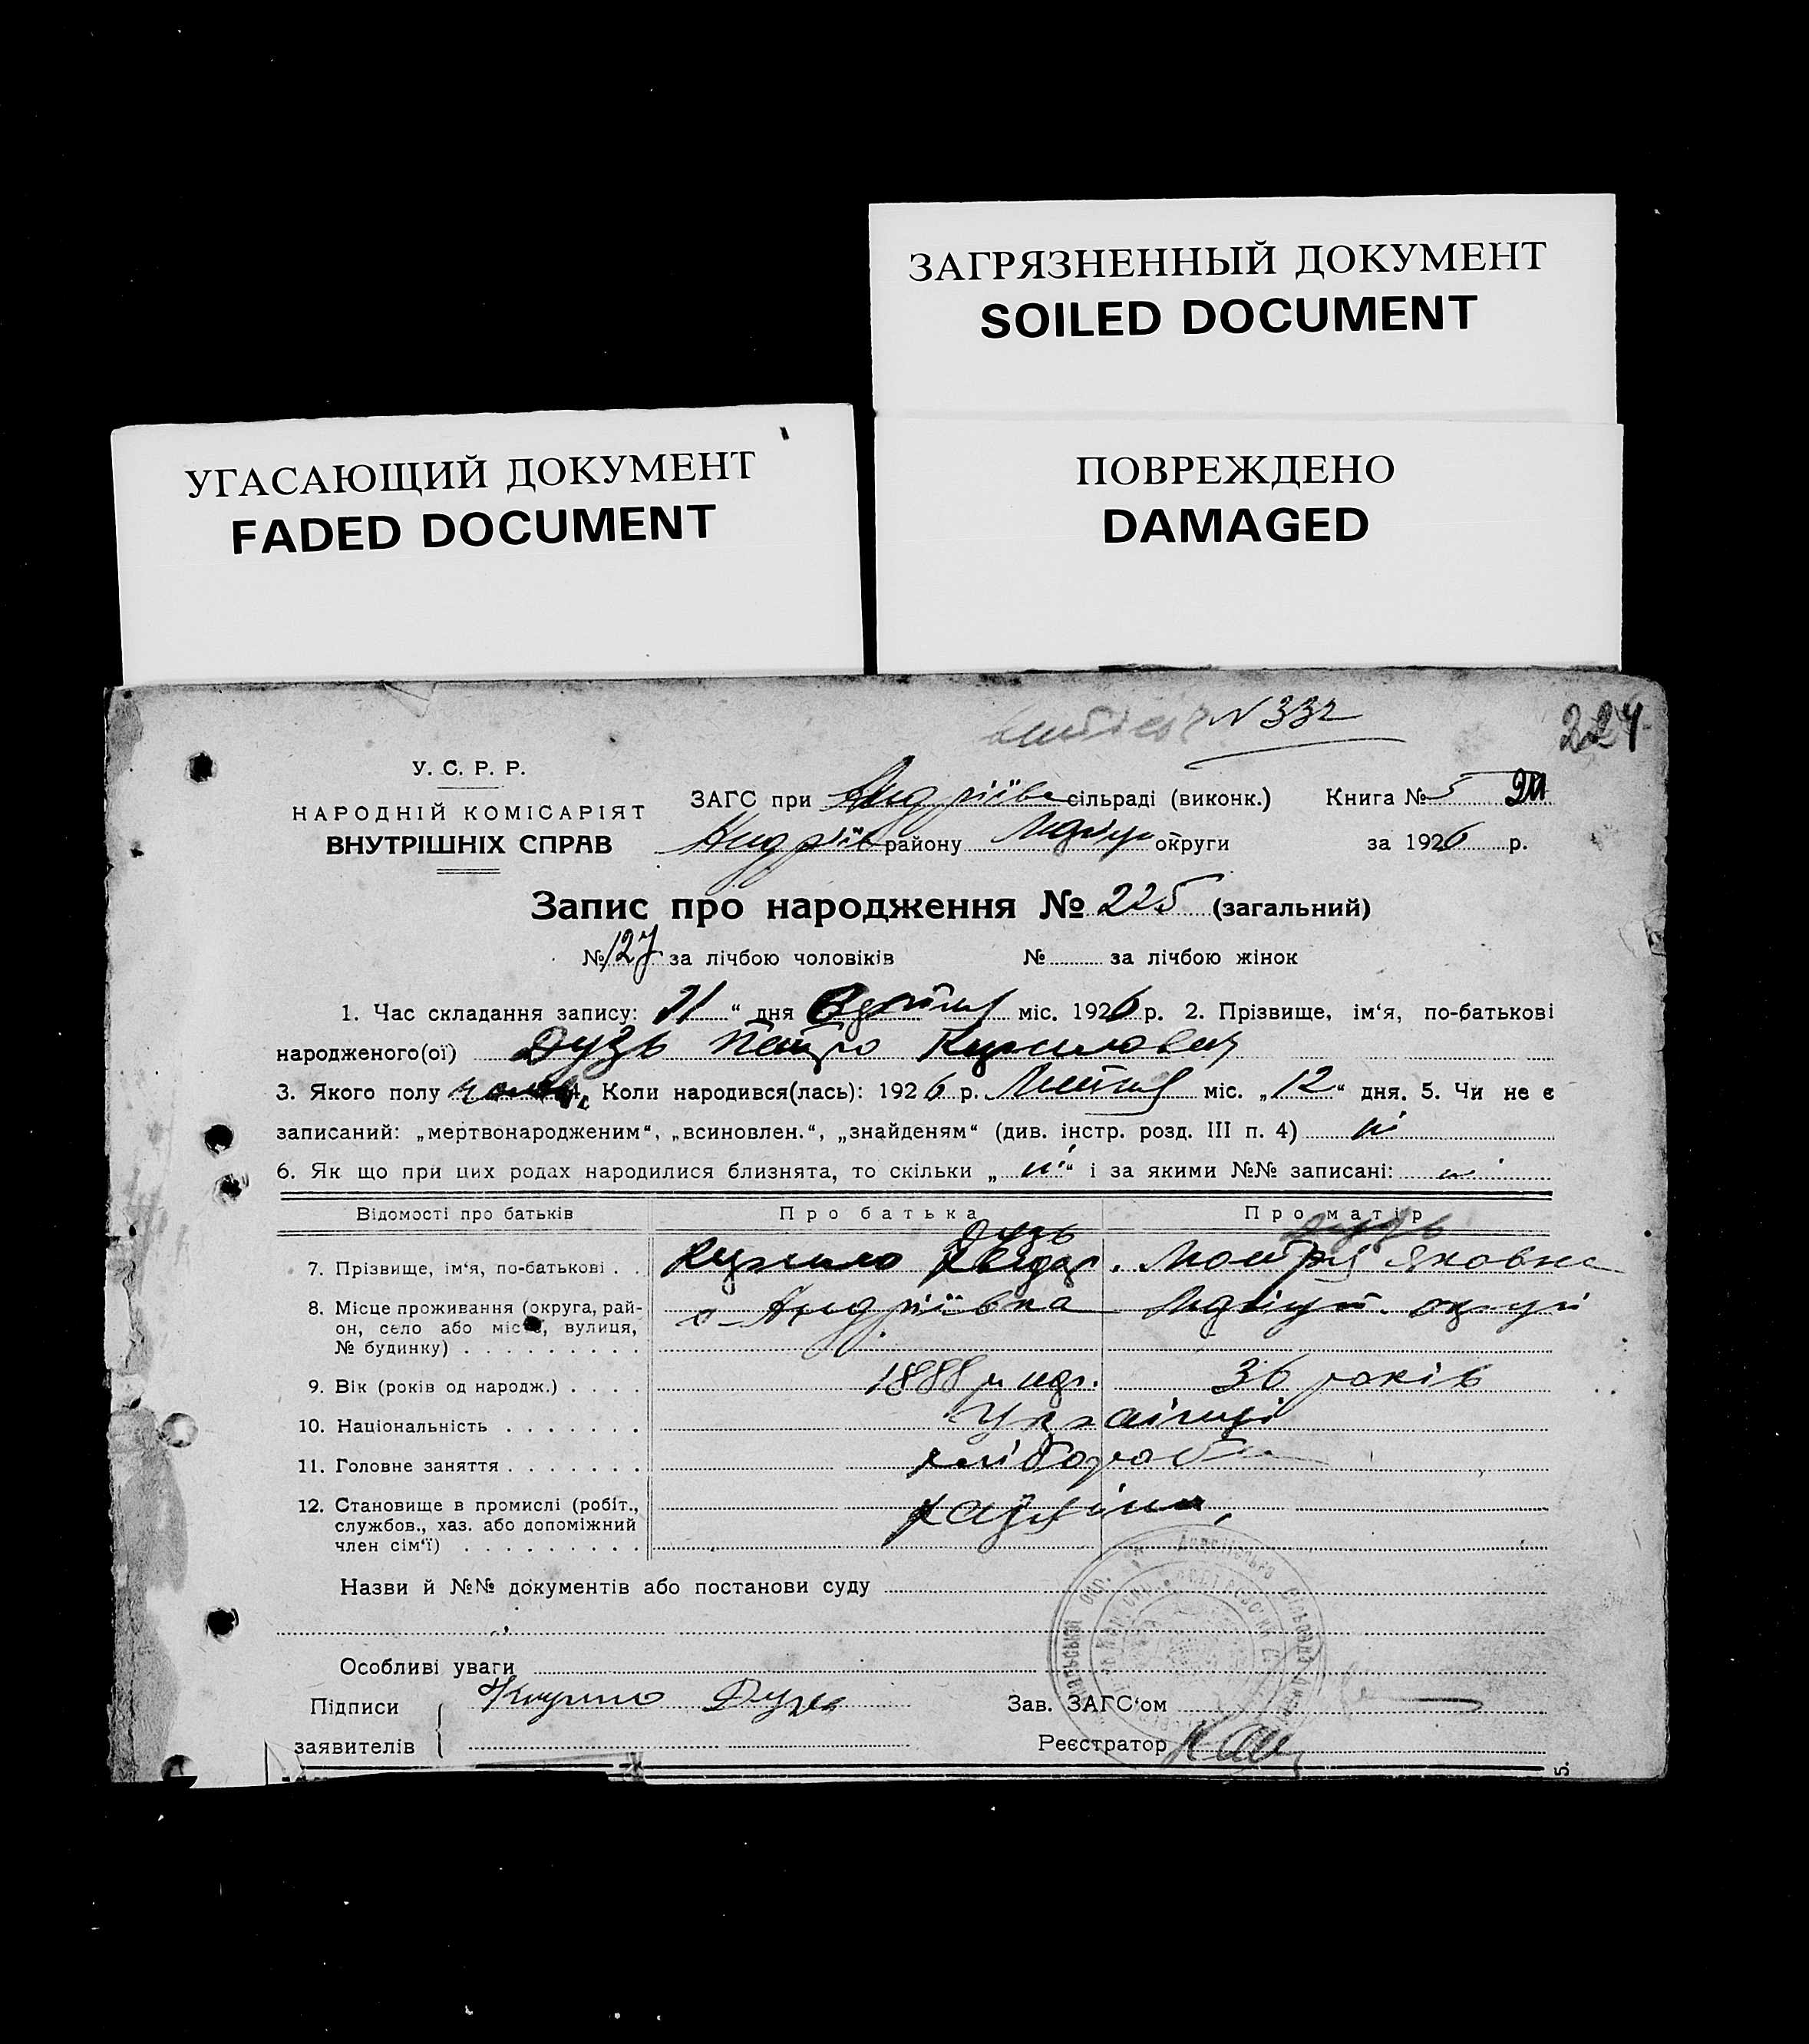 ЗАГРЯЗНЕННЫЙ ДОКУМЕНТ
SOILED DOCUMENT
УГАСАЮЩИЙ ДОКУМЕНТ
FADED DOCUMENT
ПОВРЕЖДЕНО
DAMAGED
N 332
224
У. С. Р. Р.
НАРОДНІЙ КОМІСАРІЯТ
ВНУТРІШНІХ СПРАВ
ЗАГС при Андріїв сільраді (виконк.) Книга № 5
Андріїв району округи за 1926 р.
Запис про народження № 225 (загальний)
№ 127 за лічбою чоловіків № за лічбою жінок
1. Час складання запису: 21 “ дня міс. 1926 р. 2. Прізвище, ім‘я, по-батькові
народженого(ої) Дузь Петро Кирилович
3. Якого полу 4. Коли народився(лась): 1926 р. міс. „12“ дня. 5. Чи не є
записаний: „мертвонародженим“, „всиновлен.“, „знайденям“ (див. інстр. розд. III п. 4) ні
6. Як що при цих родах народилися близнята, то скільки „ні“ і за якими №№ записані: ні
Відомості про батьків Про батька Про матір
Дузь Дузь
7. Прізвище, ім‘я, по-батькові . . Кирило Мотря Яковна
8. Місце проживання (округа, рай-
он, село або місто, вулиця,
№ будинку) . . . . . . . . . с. Андріївка округи
9. Вік (років од народж.) . . . . 1888 р. нар. 36 років
10. Національність . . . . . . . Українці
11. Головне заняття . . . . . . . хлібороб
12. Становище в промислі (робіт.,
службов., хаз. або допоміжний
член сім‘ї) . . . . . . . . . хазяїни
Назви й №№ документів або постанови суду
Особливі уваги
Підписи Кирило Дузь Зав. ЗАГС‘ом
заявителів Реєстратор